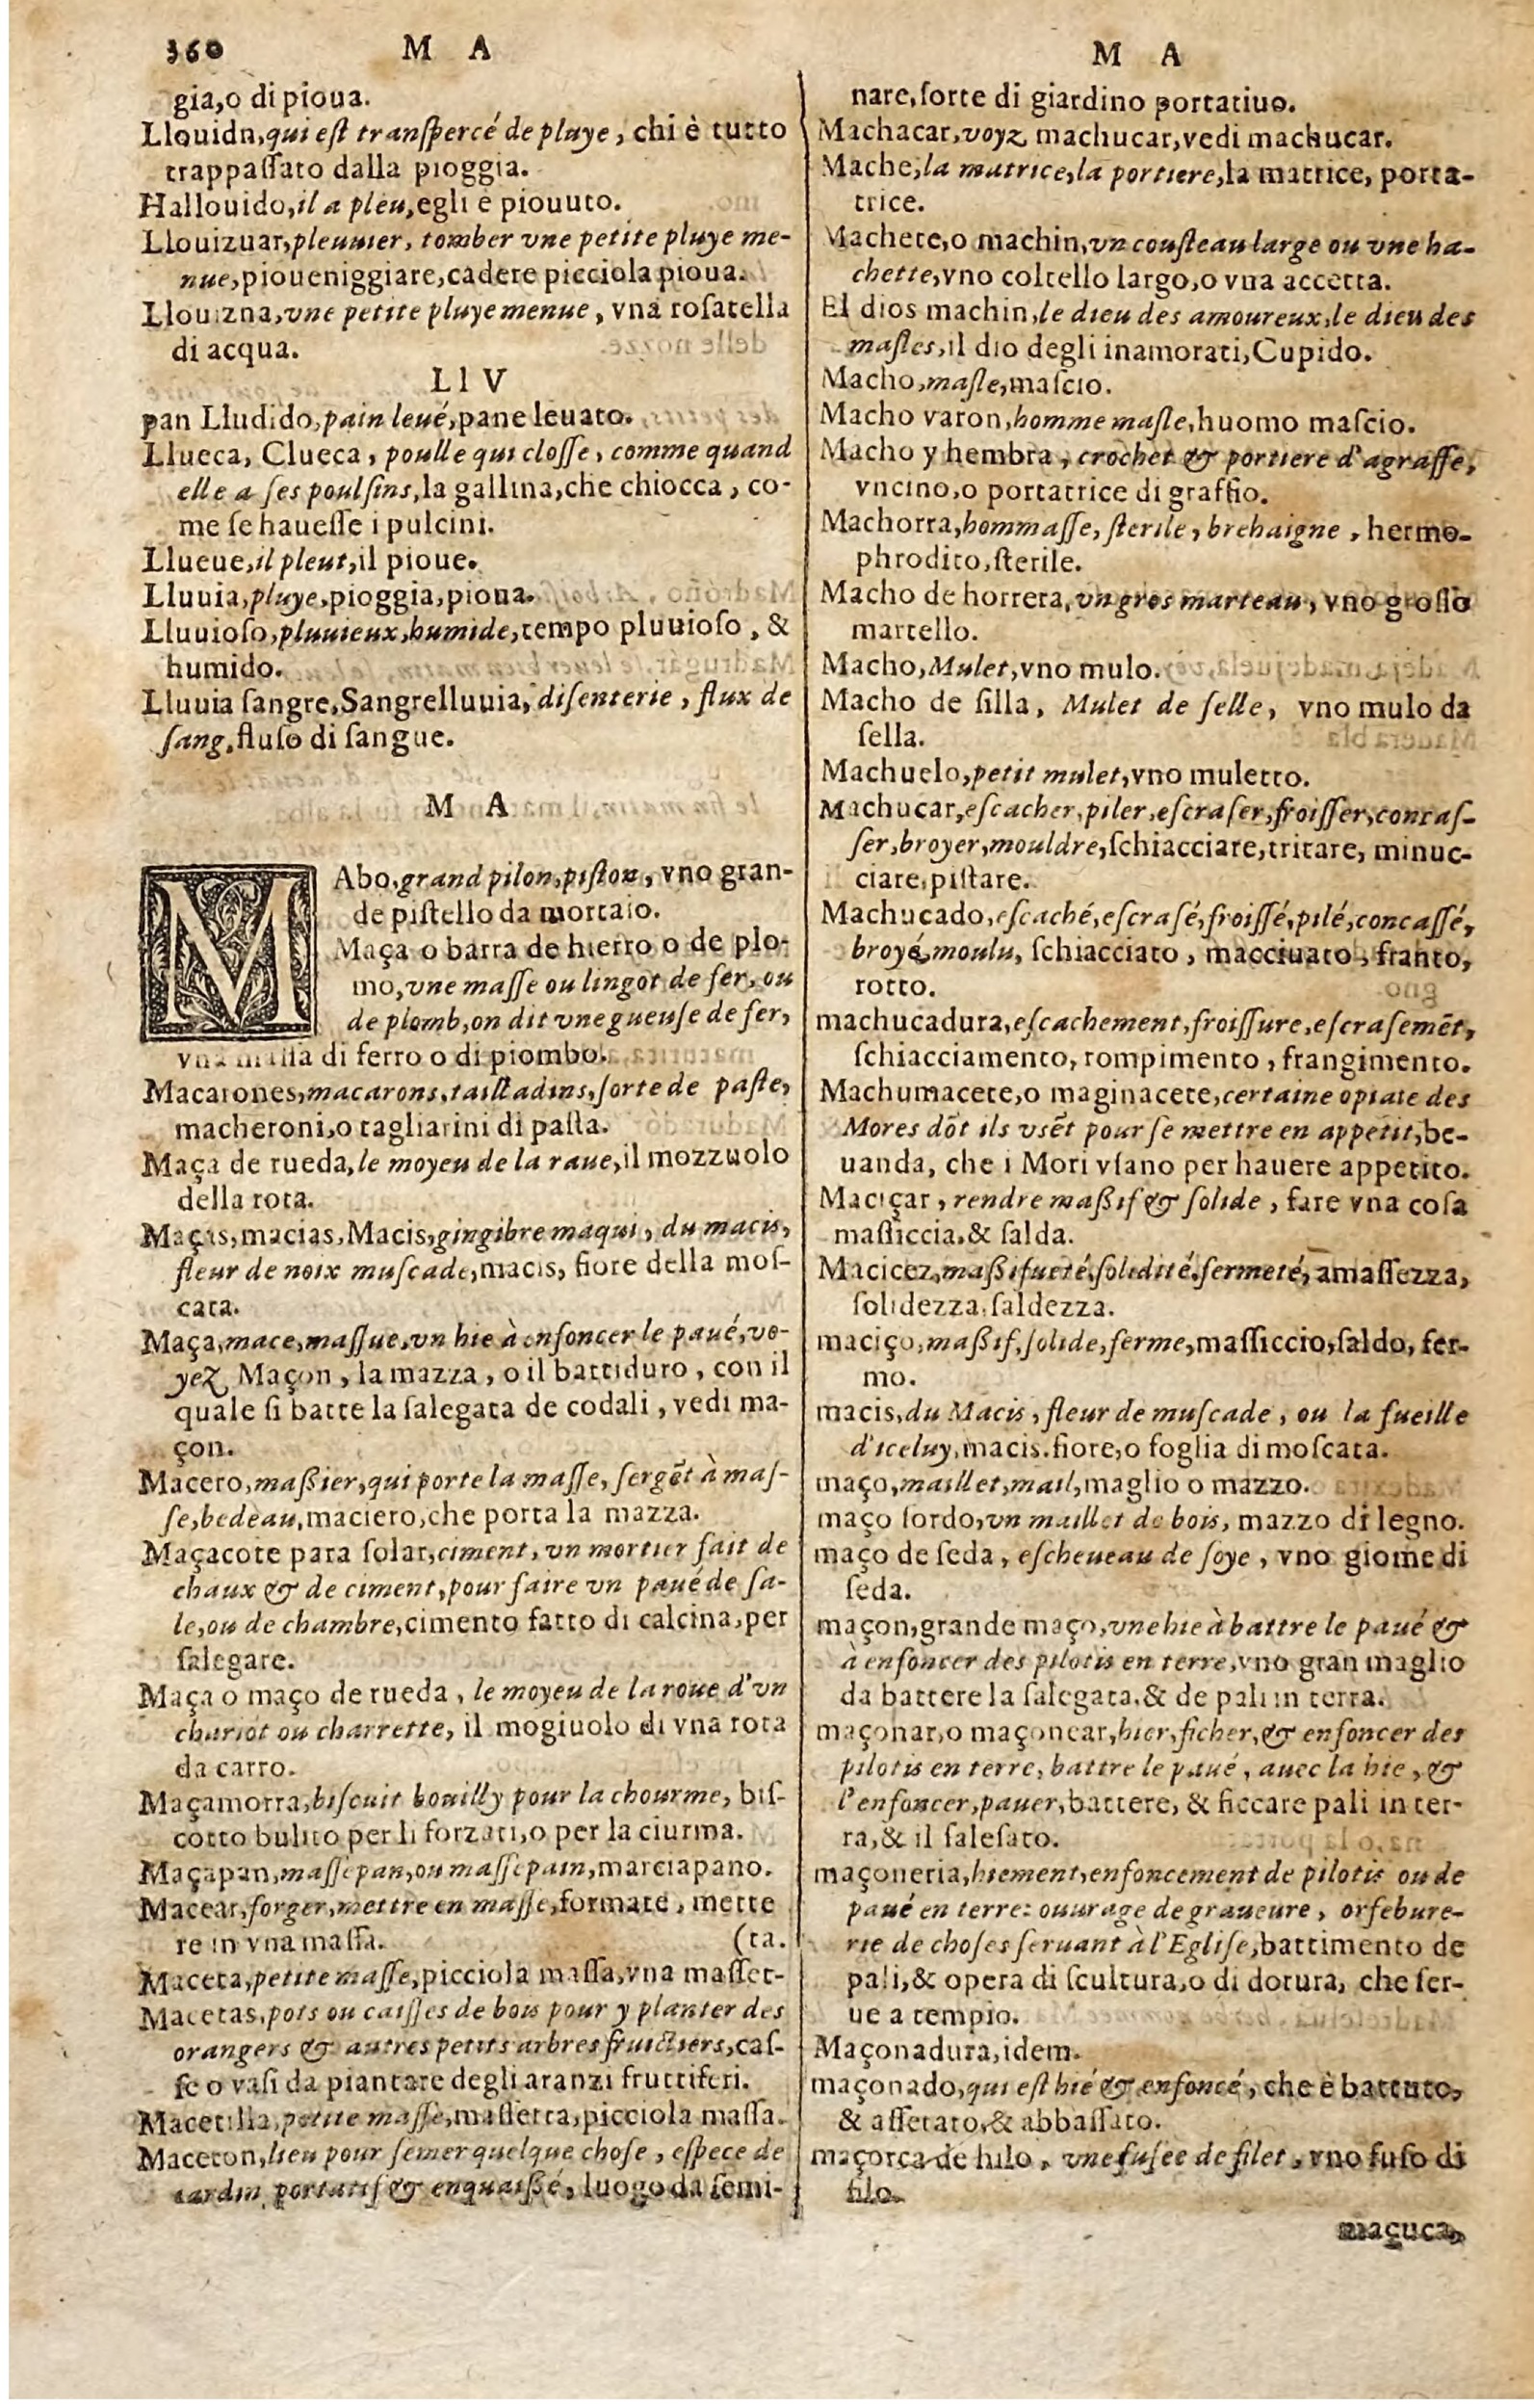 360 M A
gia,o di pioua.
Llouido,qui eſt tranſpercé de pluye, chi è tutto
trappaſſato dalla pioggia.
Hallouido,il a pleu,egli è piouuto.
Llouizuar,pleuuier, tomber vne petite pluye me-
nue,pioueniggiare,cadere picciola pioua.
Llouizna,vne petite pluye menue, vna roſatella
di acqua.
Ll V
pan Lludido,pain leué,pane leuato.
Llueca, Clueca, poulle qui cloſſe, comme quand
elle a ſes poulſins,la gallina,che chiocca, co-
me ſe haueſſe i pulcini.
Llueue,il pleut,il pioue.
Lluuia,pluye,pioggia,pioua.
Lluuioſo,pluuieux,humide,tempo pluuioſo, &
humido.
Lluuia ſangre,Sangrelluuia, diſenterie, flux de
ſang,fluſo di ſangue.
M A
MAbo,grand pilon,piſton, vno gran-
de piſtello da mortaio.
Maça o barra de hierro o de plo-
mo,vne maſſe ou lingot de fer, ou
de plomb,on dit vne gueuſe de fer,
vna maſſa di ferro o di piombo.
Macarones,macarons,tailladins,ſorte de paſte,
macheroni,o tagliarini di paſta.
Maça de rueda,le moyeu de la raue,il mozzuolo
della rota.
Maças,macias,Macis,gingibre maqui, du macis,
fleur de noix muſcade,macis, fiore della moſ-
cata.
Maça,mace,maſſue,vn hie à enfoncer le paué,vo-
yeZ Maçon, la mazza, o il battiduro, con il
quale ſi batte la ſalegata de codali, vedi ma-
çon.
Macero,maßier,qui porte la maſſe, ſergēt à maſ-
ſe,bedeau,maciero,che porta la mazza.
Maçacote para ſolar,ciment, vn mortier fait de
chaux & de ciment,pour faire vn paué de ſa-
le,ou de chambre,cimento fatto di calcina,per
ſalegare.
Maça o maço de rueda, le moyeu de la roue d'vn
chariot ou charrette, il mogiuolo di vna rota
da carro.
Maçamorra,biſcuit bouilly pour la chourme, biſ-
cotto bulito per li forzati,o per la ciurma.
Maçapan,maſſepan,ou maſſepain,marciapano.
Macear,forger,mettre en maſſe,formare, mette
re in vna maſſa. (ta.
Maceta,petite maſſe,picciola maſſa,vna maſſet-
Macetas,pots ou caiſſes de bois pour y planter des
orangers & autres petits arbres fruictiers,caſ-
ſe o vaſi da piantare degli aranzi fruttiferi.
Macetilla,petite maſſe,maſſetta,picciola maſſa.
Maceton,lieu pour ſemer quelque choſe, eſpece de
iardin portatif & enquaißé, luogo da ſemi-
M A
nare,ſorte di giardino portatiuo.
Machacar,voyZ machucar,vedi machucar.
Mache,la matrice,la portiere,la matrice, porta-
trice.
Machete,o machin,vn couſteau large ou vne ha-
chette,vno coltello largo,o vna accetta.
El dios machin,le dieu des amoureux,le dieu des
maſles,il dio degli inamorati,Cupido.
Macho,maſle,maſcio.
Macho varon,homme maſle,huomo maſcio.
Macho y hembra, crochet & portiere d'agraffe,
vncino,o portatrice di graffio.
Machorra,hommaſſe, ſterile, brehaigne, hermo-
phrodito,ſterile.
Macho de horrera,vn gros marteau, vno groſſo
martello.
Macho,Mulet,vno mulo.
Macho de ſilla, Mulet de ſelle, vno mulo da
ſella.
Machuelo,petit mulet,vno muletto.
Machucar,eſcacher,piler,eſcraſer,froiſſer,concaſ-
ſer,broyer,mouldre,ſchiacciare,tritare, minuc-
ciare,piſtare.
Machucado,eſcaché,eſcraſé,froiſſé,pilé,concaſſé,
broyé,moulu, ſchiacciato, macciuato, franto,
rotto.
machucadura,eſcachement,froiſſure,eſcraſemēt,
ſchiacciamento, rompimento, frangimento.
Machumacete,o maginacete,certaine opiate des
Mores dōt ils vſēt pour ſe mettre en appetit,be-
uanda, che i Mori vſano per hauere appetito.
Maciçar, rendre maßif & ſolide, fare vna coſa
maſſiccia,& ſalda.
Macicez,maßifueté,ſolidité,fermeté, amaſſezza,
ſolidezza,ſaldezza.
maciço,maßif,ſolide,ferme,maſſiccio,ſaldo, fer-
mo.
macis,du Macis, fleur de muſcade, ou la fueille
d'iceluy,macis.fiore,o foglia di moſcata.
maço,maillet,mail,maglio o mazzo.
maço ſordo,vn maillet de bois, mazzo di legno.
maço de ſeda, eſcheueau de ſoye, vno giome di
ſeda.
maçon,grande maço,vne hie à battre le paué &
à enfoncer des pilotis en terre,vno gran maglio
da battere la ſalegata,& de pali in terra.
maçonar,o maçonear,hier,ficher,& enfoncer des
pilotis en terre, battre le paué, auec la hie, &
l'enfoncer,pauer,battere, & ficcare pali in ter-
ra,& il ſaleſato.
maçoneria,hiement,enfoncement de pilotis ou de
paué en terre: ouurage de graueure, orfebure-
rie de choſes ſeruant à l'Egliſe,battimento de
pali,& opera di ſcultura,o di dotura, che ſer-
ue a tempio.
Maçonadura,idem.
maçonado,qui eſt hié & enfoncé, che è battuto,
& aſſetato,& abbaſſato.
maçorca de hilo, vne fuſee de filet, vno fuſo di
filo.
maçuca,